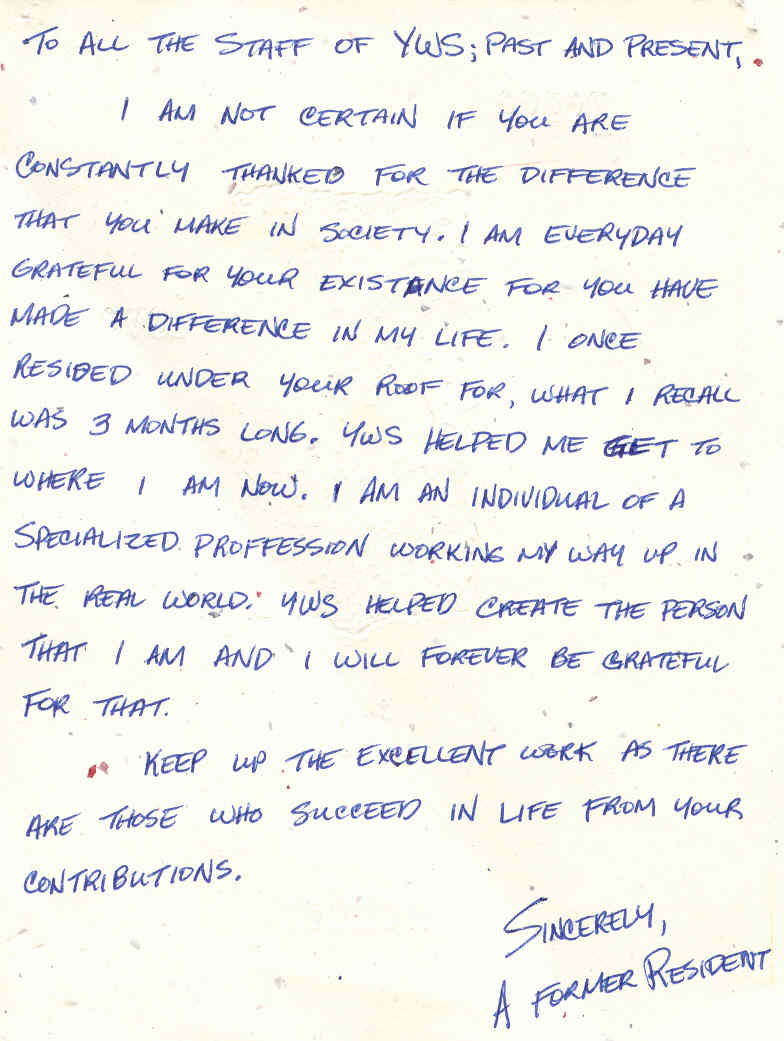 To All The Staff of YWS; Past and Present,
I am not certain if you are
constantly thanked for the difference
that you make in society. I am everyday
grateful for your existance for you have
made a difference in my life. I once
resided under your roof for, what I recall
was 3 months long. YWS helped me get to
where I am now. I am an individual of a
specialized proffession working my way up in
the real world. YWS helped create the person
that I am and I will forever be grateful
for that.
Keep up the excellent work as there
are those who succeed in life from your
contributions.
Sincerely,
A Former Resident